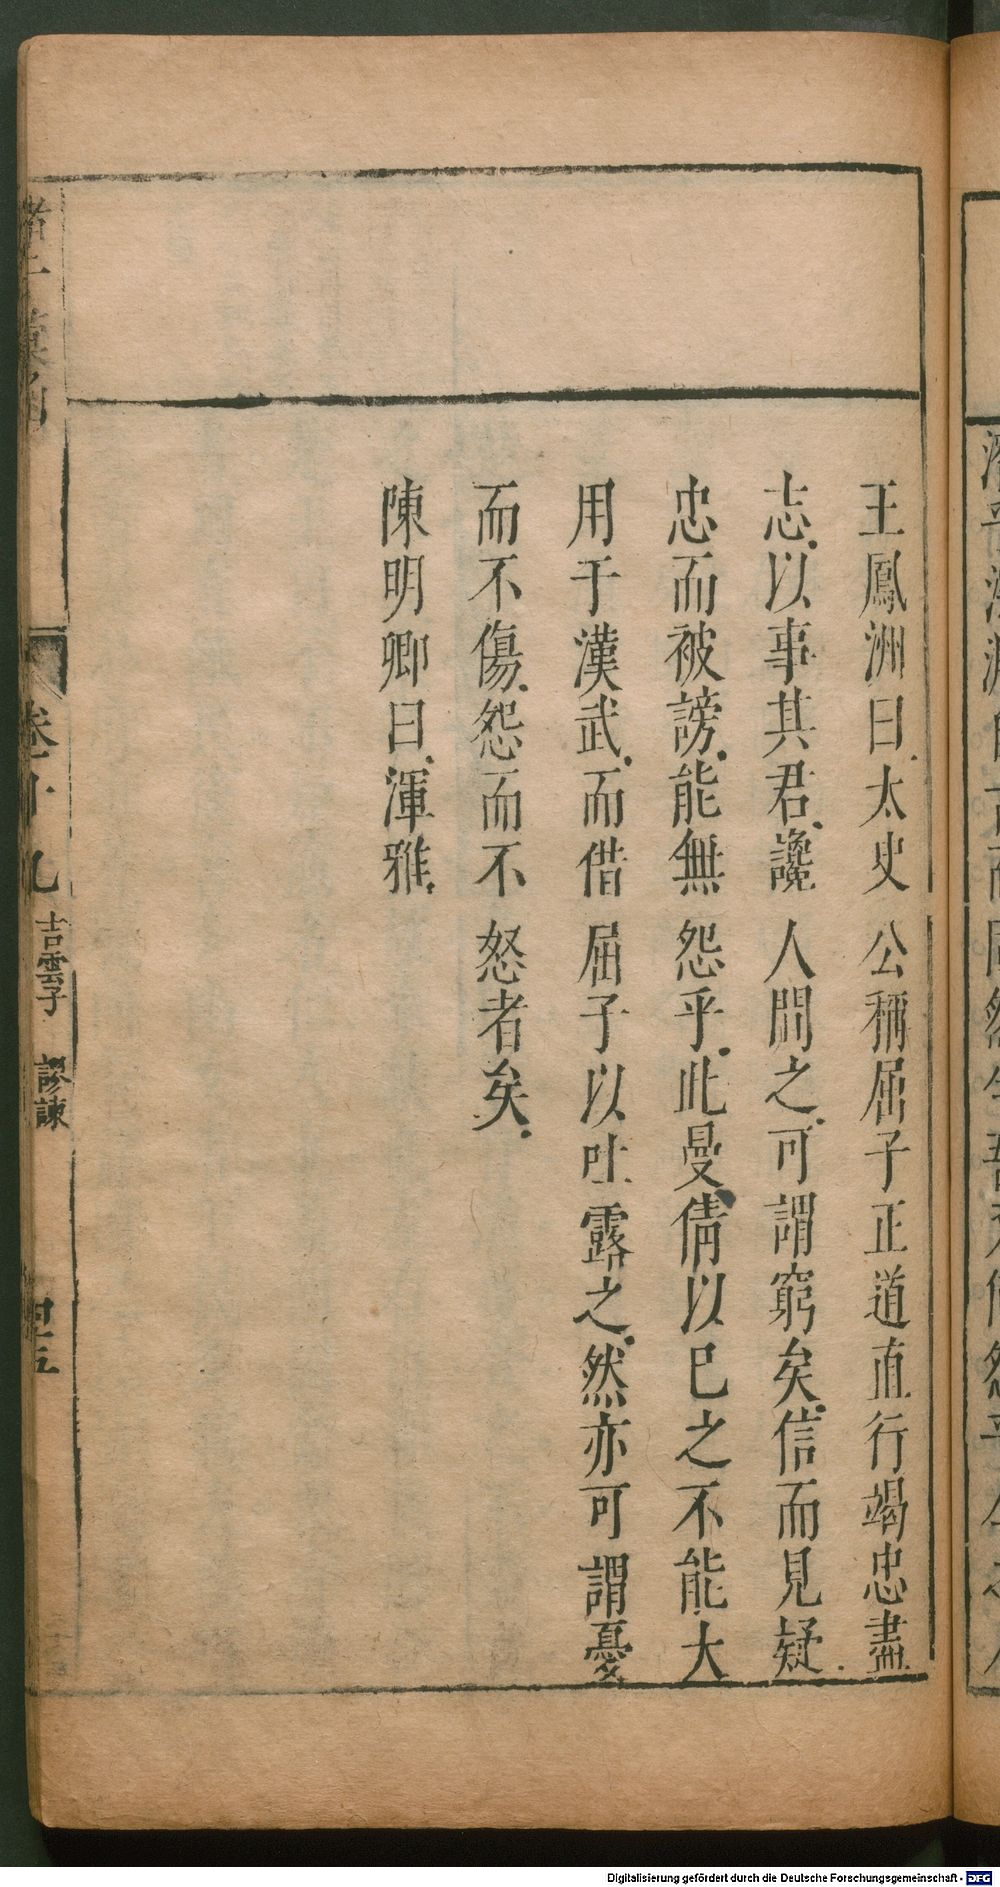 王鳳洲曰太史公稱屈子正道直行竭忠盡
志以事其君讒人間之可謂窮矣信而見疑
忠而被謗能無怨乎此曼倩以已之不能大
用于漢武而借屈子以吐露之然亦可謂憂
而不傷怨而不怒者矣
陳明卿曰渾雅
卷十九 吉雲子 謬諫
Digitalisierung gefördert durch die Deutsche Forschungsgemeinschaft - DFG